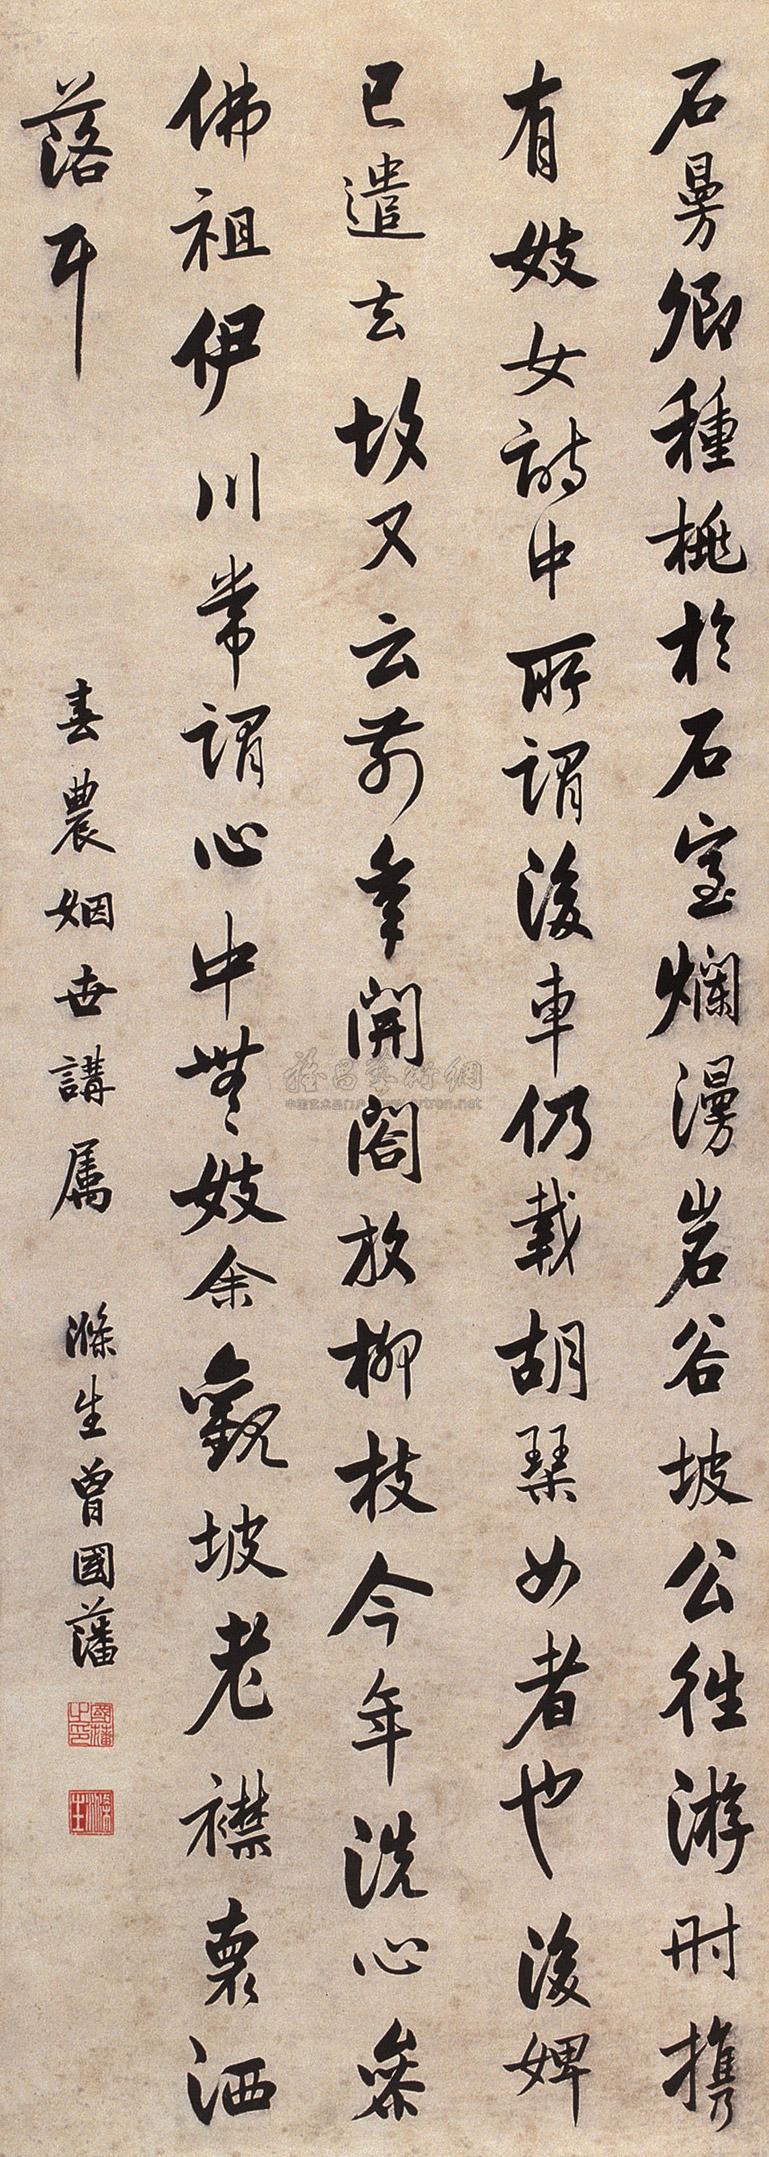 石曼卿種桃於石室爛漫岩谷坡公往游时携
有妓女詩中所謂後車仍載胡琴女者也後婢
已遣去故又云前年開閤放柳枝今年洗心參
佛祖伊川常謂心中無妓余觀坡老襟袌洒
落耳
春農姻世講属
滌生曾國藩
國藩之印
滌生